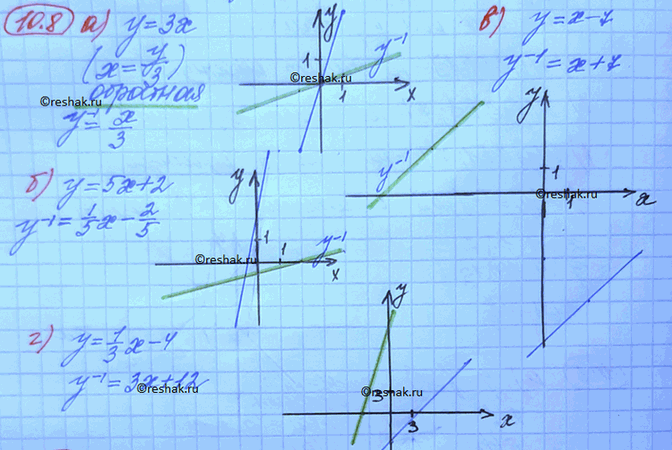 10.8 а) y = 3x
(x = y/3)
обратная
y⁻¹ = x/3
y
y⁻¹
1
1
x
©reshak.ru
©reshak.ru
б) y = 5x + 2
y⁻¹ = 1/5 x - 2/5
y
1
1
y⁻¹
x
©reshak.ru
в) y = x - 7
y⁻¹ = x + 7
y
y⁻¹
1
1
x
©reshak.ru
г) y = 1/3 x - 4
y⁻¹ = 3x + 12
©reshak.ru
y
3
3
x
©reshak.ru